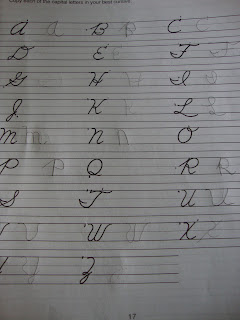 Copy each of the capital letters in your best cursive.
A A B B C C
D E F F
G H H I I
J K K L L
M M N N O
P P Q R R
S T U U
W X
Z
17